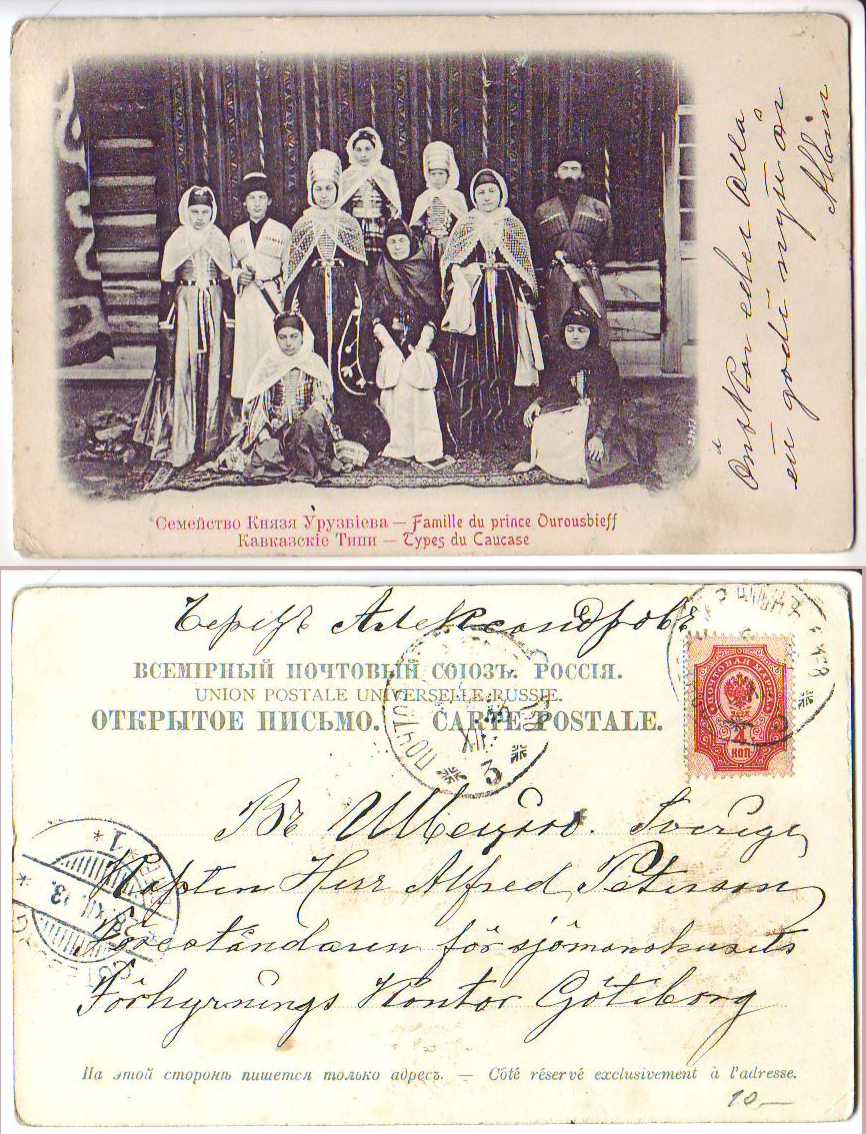 Önskar eder Alla
ett godt nytt år
Семейство Князя Урузбiева — Famille du prince Ourousbieff
Кавказскiе Типы — Types du Caucase
Александровъ
ВСЕМIРНЫЙ ПОЧТОВЫЙ СОЮЗЪ. РОССIЯ.
UNION POSTALE UNIVERSELLE. RUSSIE.
ОТКРЫТОЕ ПИСЬМО. — CARTE POSTALE.
ПОЧТОВАЯ МАРКА
4
КОП
3
Въ Швецiю. Sverige
Kapten Herr Alfred Peterson
Föreståndaren för sjömanshusets
Förhyrnings Kontor Göteborg
На этой сторонѣ пишется только адресъ. — Côté réservé exclusivement à l'adresse.
10 —